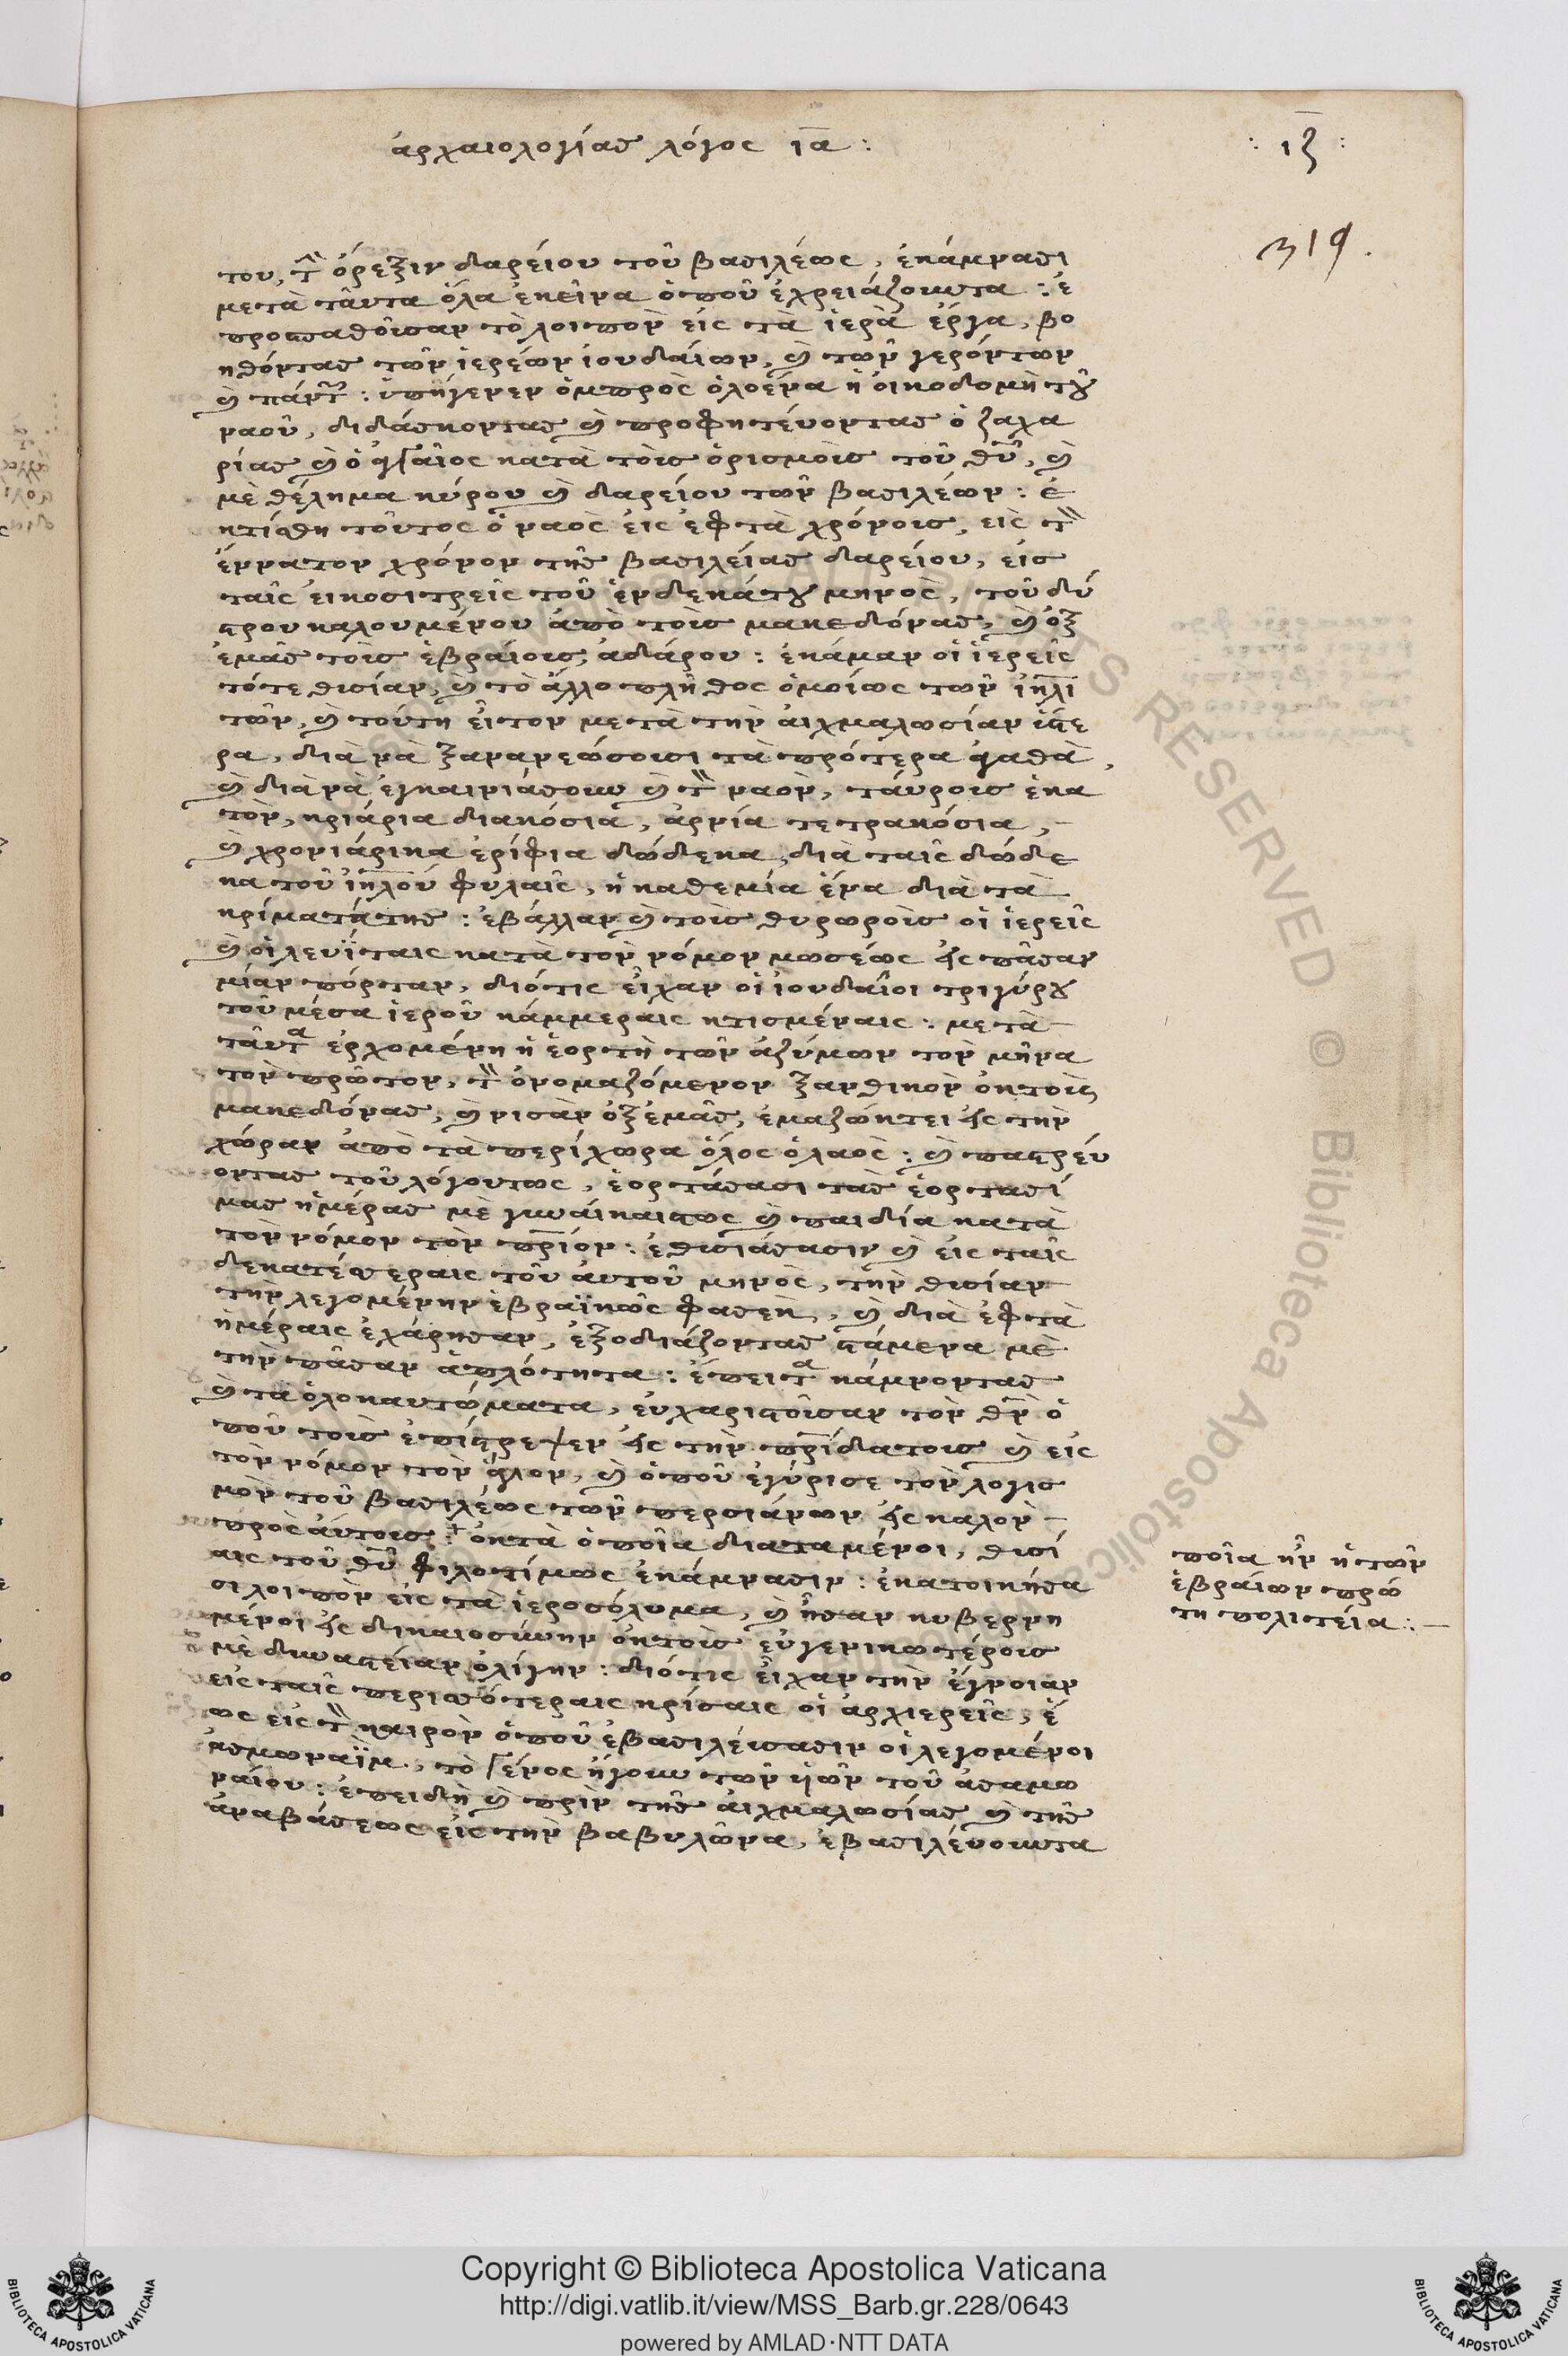 ἀρχαιολογίας λόγος ια :
: ιζ :
319.
του, τὴν ὄρεξιν δαρείου τοῦ βασιλέως, ἐκάμνασι
μετὰ ταῦτα ὅλα ἐκεῖνα ὁποῦ ἐχρειάζουντα : ἐ
προσπαθοῦσαν τὸ λοιπὸν εἰς τὰ ἱερὰ ἔργα, βο
ηθόντας τῶν ἱερέων ἰουδαίων, καὶ τῶν γερόντων
καὶ πάντων : ὑπήγενεν ὀμπρὸς ὁλοένα ἡ οἰκοδομὴ τοῦ
ναοῦ, διδάσκοντας καὶ προφητεύοντας ὁ ζαχα
ρίας καὶ ὁ ἀγγαῖος κατὰ τοὺς ὁρισμοὺς τοῦ θῦ, καὶ
μὲ θέλημα κύρου καὶ δαρείου τῶν βασιλέων : ἐ
κτίσθη τοῦτος ὁ ναὸς εἰς ἑφτὰ χρόνους, εἰς τὸν
ἔννατον χρόνον τῆς βασιλείας δαρείου, εἰς
ταῖς εἰκοσιτρεῖς τοῦ ἑνδεκάτου μηνὸς, τοῦ δύ
στρου καλουμένου ἀπὸ τοὺς μακεδόνας, καὶ ὀξ
ἐμᾶς τοὺς ἑβραίους, ἀδάρου : ἐκάμαν οἱ ἱερεῖς
τότε θυσίαν, καὶ τὸ ἄλλο πλῆθος ὁμοίως τῶν ἰηλι
τῶν, καὶ τούτη εἶτον μετὰ τὴν αἰχμαλωσίαν ὕστε
ρα, διὰ νὰ ξανανεώσουσι τὰ πρότερα ἀγαθὰ,
καὶ διὰ νὰ ἐγκαινιάσουν καὶ τὸν ναὸν, ταύρους ἑκα
τὸν, κριάρια διακόσια, ἀρνία τετρακόσια,
καὶ χρονιάρικα ἐρίφια δώδεκα, διὰ ταῖς δώδε
κα τοῦ ἰηλοῦ φυλαῖς, ἡ καθεμία ἕνα διὰ τὰ
κρίματά της : ἐβάλλαν καὶ τοὺς θυρωροὺς οἱ ἱερεῖς
καὶ οἱ λευΐταις κατὰ τὸν νόμον μωσέως εἰς πᾶσαν
μίαν πόρταν, διότις εἶχαν οἱ ἰουδαῖοι τριγύρου
τοῦ μέσα ἱεροῦ κάμμεραις κτισμέναις : μετὰ
ταῦτα ἐρχομένη ἡ ἑορτὴ τῶν ἀζύμων τὸν μῆνα
τὸν πρῶτον, τὸν ὀνομαζόμενον ξανθικὸν ὀκ τοὺς
μακεδόνας, καὶ νισὰν ὀξ ἐμᾶς, ἐμαζώκτει εἰς τὴν
χώραν ἀπὸ τὰ περίχωρα ὅλος ὁ λαὸς : καὶ παστρεύ
οντας τοῦ λόγουτως, ἑορτάσασι τὰς ἑορτασί
μας ἡμέρας μὲ γυναίκαιςτως καὶ παιδία κατὰ
τὸν νόμον τὸν πριον : ἐθυσιάσασιν καὶ εἰς ταῖς
δεκατέσσεραις τοῦ αὐτοῦ μηνὸς, τὴν θυσίαν
τὴν λεγομένην ἑβραϊκῶς φασεκ, καὶ διὰ ἑφτὰ
ἡμέραις ἐχάρησαν, ἐξοδιάζοντας στάμενα μὲ
τὴν πᾶσαν ἁπλότητα : ἔπειτα κάμνοντας
καὶ τὰ ὁλοκαυτώματα, εὐχαριστοῦσαν τὸν θν ὁ
ποῦ τοὺς ἐπίστρεψεν εἰς τὴν πρίδατους καὶ εἰς
τὸν νόμον τὸν ἅγιον, καὶ ὁποῦ ἐγύρισε τὸν λογισ
μὸν τοῦ βασιλέως τῶν περσιάνων εἰς καλὸν
πρὸς αὐτοὺς : + ὀκτὰ ὁποῖα διαταμένοι, θυσί
αις τοῦ θῦ φιλοτίμως ἐκάμνασιν : ἐκατοικήσα
σι λοιπὸν εἰς τὰ ἱεροσόλυμα, καὶ ἦσαν κυβερνη
μένοι εἰς δικαιοσύνην ὀκ τοὺς εὐγενικωτέρους
μὲ δυναστείαν ὀλίγην : διότις εἶχαν τὴν ἔγνοιαν
εἰς ταῖς περισσότεραις κρίσαις οἱ ἀρχιερεῖς, ἕ
ως εἰς τὸν καιρὸν ὁποῦ ἐβασιλεύσασιν οἱ λεγομένοι
ασμωναῒμ, τὸ γένος ἤγουν τῶν ὑῶν τοῦ ἀσαμω
ναίου : ἐπειδὴ καὶ πρὶν τῆς αἰχμαλωσίας καὶ τῆς
ἀναβάσεως εἰς τὴν βαβυλῶνα, ἐβασιλεύουντα
ποῖα ἦν ἡ τῶν
ἑβραίων πρώ
τη πολιτεία : —
Copyright © Biblioteca Apostolica Vaticana
http://digi.vatlib.it/view/MSS_Barb.gr.228/0643
powered by AMLAD·NTT DATA